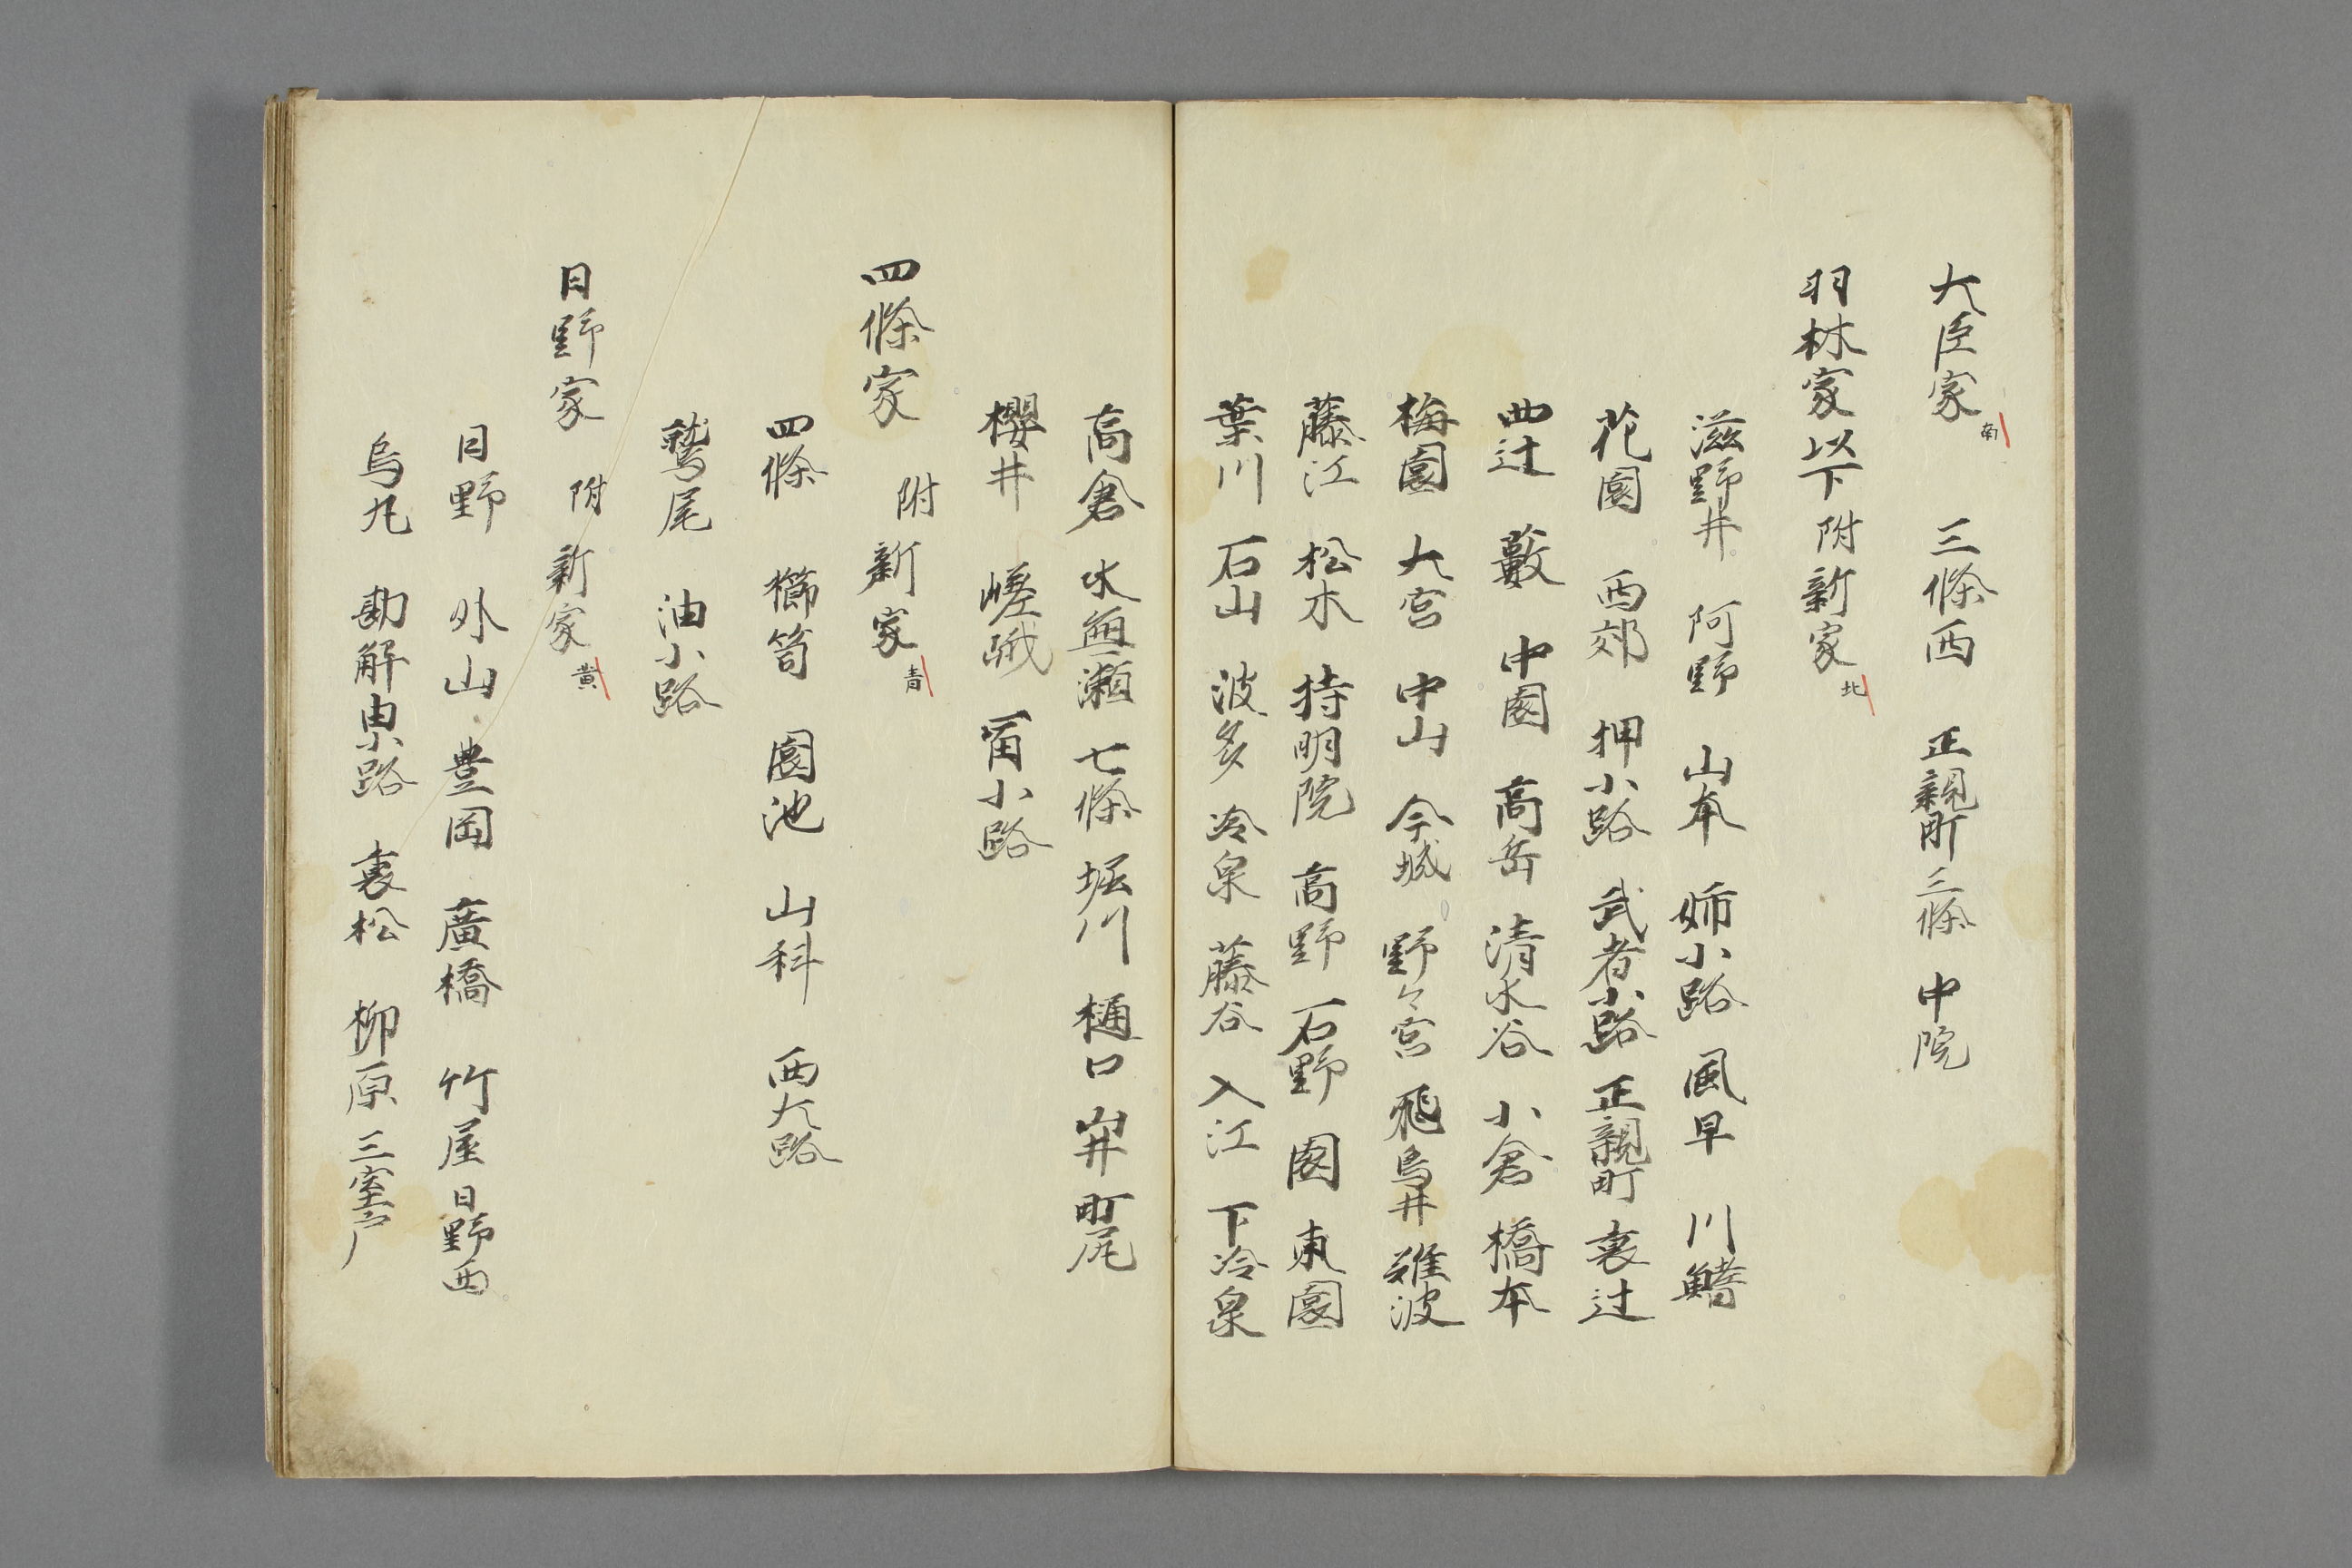 大臣家南　三條西　正親町三條　中院
羽林家以下附新家北
滋野井　阿野　山本　姉小路　風早　川鰭
花園　西郊　押小路　武者小路　正親町　裏辻
四辻　藪　中園　高岳　清水谷　小倉　橋本
梅園　大宮　中山　今城　野々宮　飛鳥井　難波
藤江　松木　持明院　高野　石野　園　東園
葉川　石山　波多　冷泉　藤谷　入江　下冷泉
高倉　水無瀬　七條　堀川　樋口　山井　町尻
櫻井　嵯峨　冨小路
四條家　附新家青
四條　櫛笥　園池　山科　西大路
鷲尾　油小路
日野家　附新家黄
日野　外山　豊岡　廣橋　竹屋　日野西
烏丸　勘解由小路　裏松　柳原　三室戸